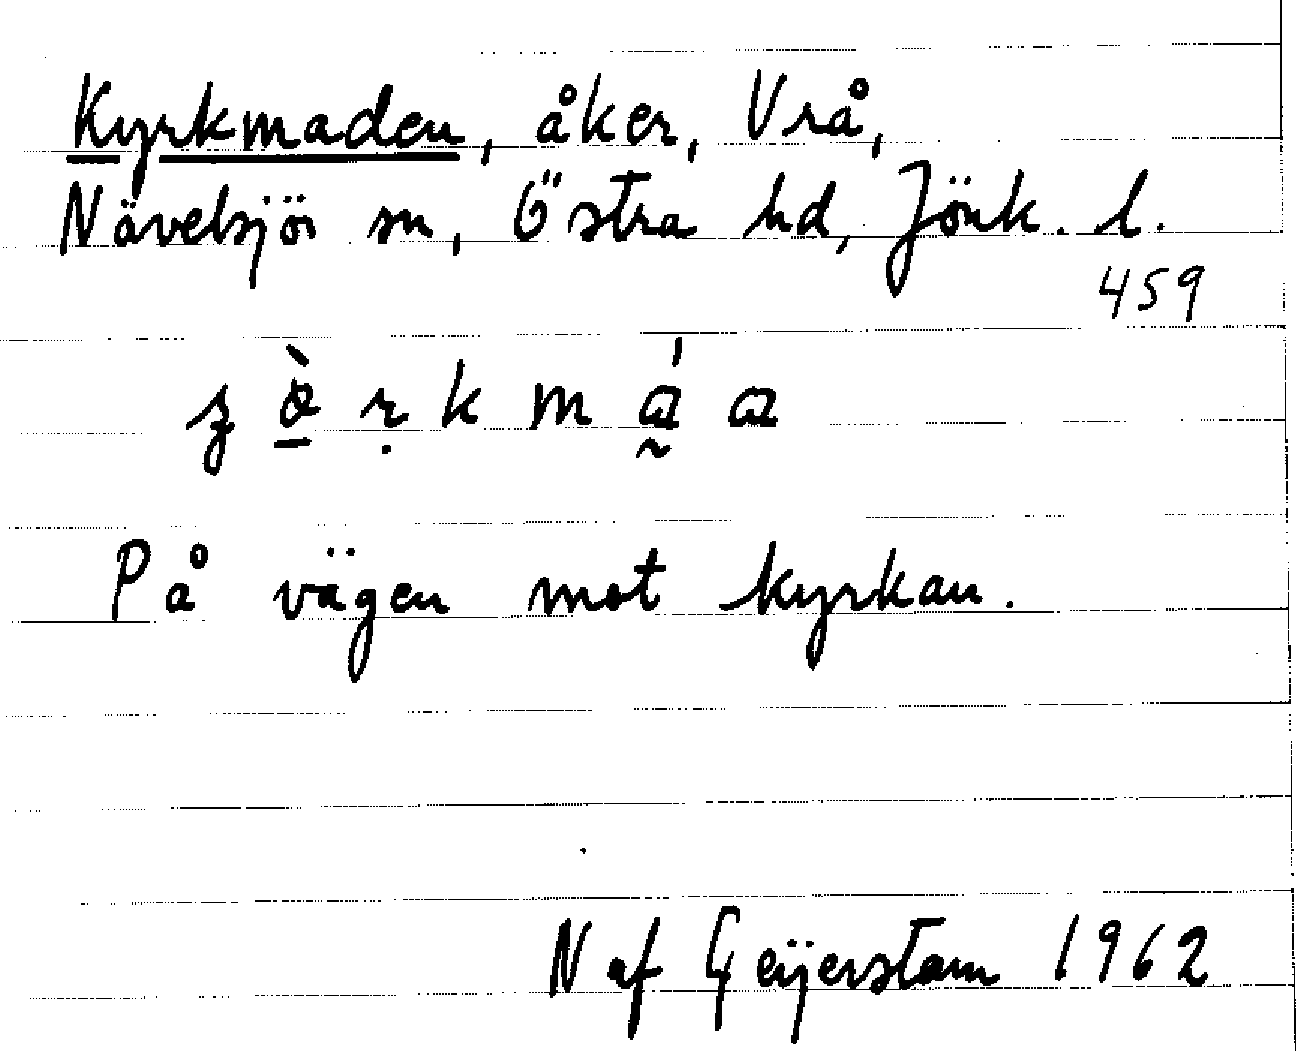 Kyrkmaden, åker, Vrå,
Nävelsjö sn, Östra hd, Jönk. l.
459
På vägen mot kyrkan.
N af Geijerstam 1962